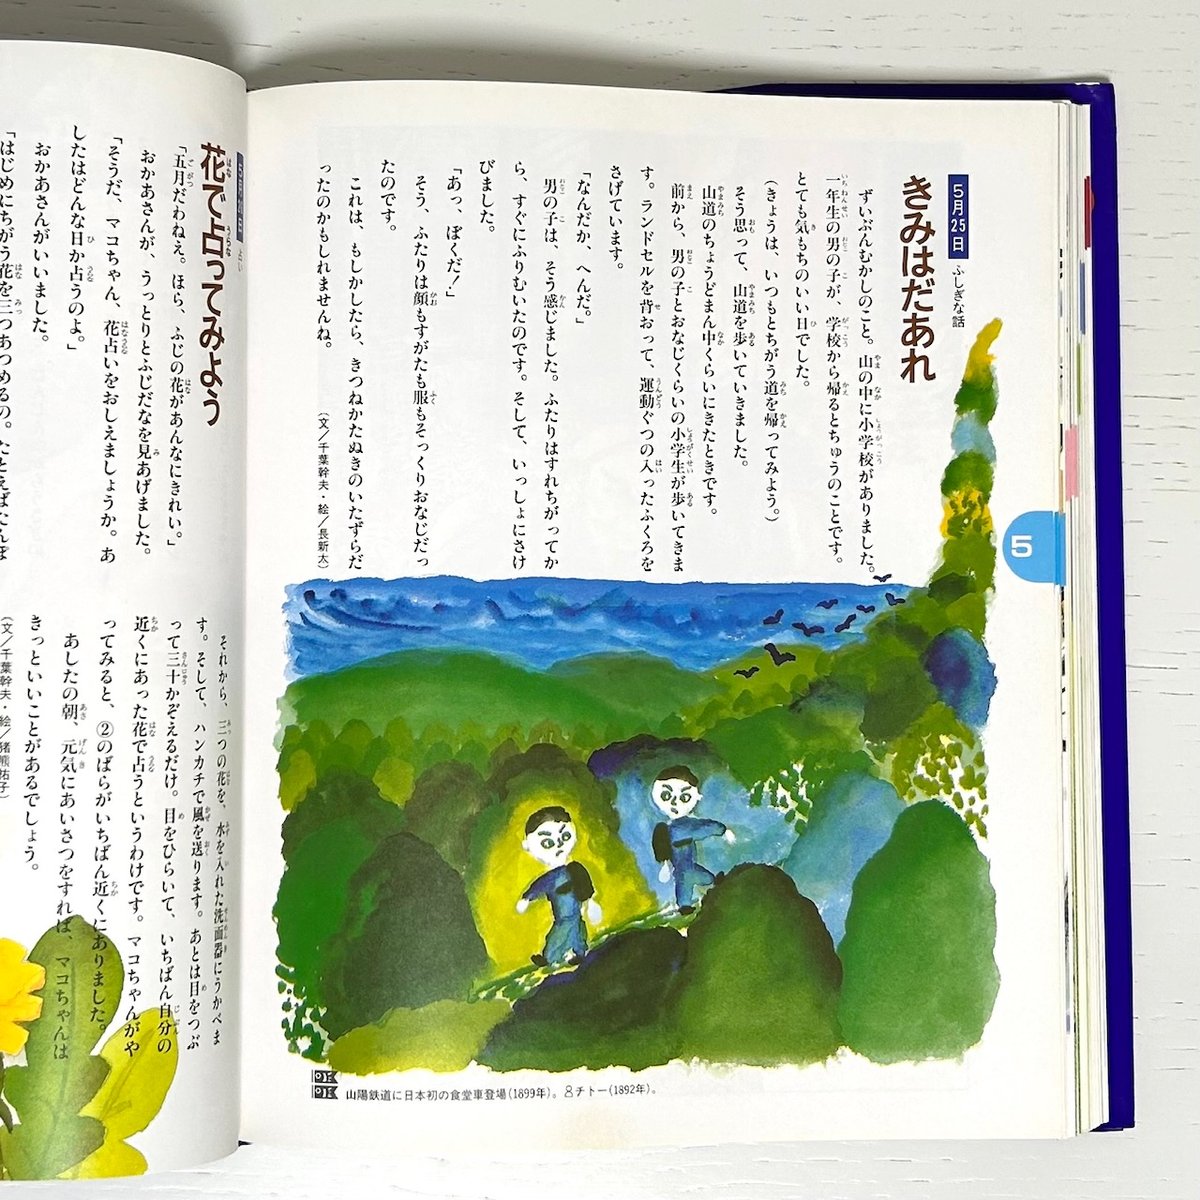 5月25日 ふしぎな話
きみはだあれ
ずいぶんむかしのこと。山の中に小学校がありました。
一年生の男の子が、学校から帰るとちゅうのことです。
とても気もちのいい日でした。
(きょうは、いつもとちがう道を帰ってみよう。)
そう思って、山道を歩いていきました。
山道のちょうどまん中くらいにきたときです。
前から、男の子とおなじくらいの小学生が歩いてきま
す。ランドセルを背おって、運動ぐつの入ったふくろを
さげています。
「なんだか、へんだ。」
男の子は、そう感じました。ふたりはすれちがってか
ら、すぐにふりむいたのです。そして、いっしょにさけ
びました。
「あっ、ぼくだ!」
そう、ふたりは顔もすがたも服もそっくりおなじだっ
たのです。
これは、もしかしたら、きつねかたぬきのいたずらだ
ったのかもしれませんね。
(文/千葉幹夫・絵/長新太)
5
山陽鉄道に日本初の食堂車登場(1899年)。チトー(1892年)。
占い
花で占ってみよう
「五月だわねえ。ほら、ふじの花があんなにきれい。」
おかあさんが、うっとりとふじだなを見あげました。
「そうだ、マコちゃん、花占いをおしえましょうか。あ
したはどんな日か占うのよ。」
おかあさんがいいました。
「はじめにちがう花を三つあつめるの。たとえばたんぽ
それから、三つの花を、水を入れた洗面器にうかべま
す。そして、ハンカチで風を送ります。あとは目をつぶ
って三十かぞえるだけ。目をひらいて、いちばん自分の
近くにあった花で占うというわけです。マコちゃんがや
ってみると、②のばらがいちばん近くにありました。
あしたの朝、元気にあいさつをすれば、マコちゃんは
きっといいことがあるでしょう。
(文/千葉幹夫・絵/猪熊祐子)